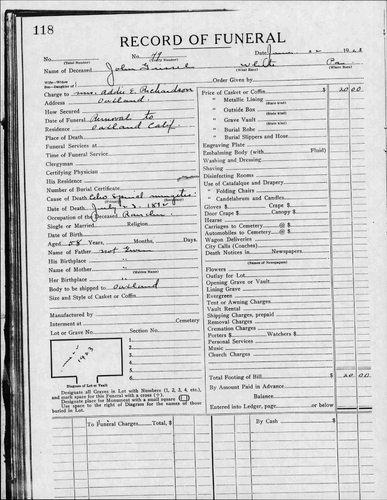 118
RECORD OF FUNERAL
No. No. 44 Date June 1928
(Total Number) (Yearly Number)
Name of Deceased John White
(What Race) (Where Born)
Charge to Mrs. Addie E. Richardson
Address Oakland
How Secured
Date of Funeral Removal to
Residence Oakland Calif
Place of Death
Funeral Services at
Time of Funeral Service
Clergyman
Certifying Physician
His Residence
Number of Burial Certificate
Cause of Death
Date of Death July 3, 18
Occupation of the Deceased
Single or Married Religion
Date of Birth
Aged 58 Years, Months, Days.
Name of Father not
His Birthplace
Name of Mother
(Maiden Name)
Her Birthplace
Body to be shipped to Oakland
Size and Style of Casket or Coffin
Manufactured by
Interment at Cemetery
Lot or Grave No. Section No.
1923
1.
2.
3.
4.
5.
6.
Diagram of Lot or Vault
Designate all Graves in Lot with Numbers (1, 2, 3, 4, etc.),
and mark space for this Funeral with a cross (+).
Designate place for Monument with a small square
Use space to the right of Diagram for the names of those
buried in Lot.
To Funeral Charges Total, $
Order Given by
Price of Casket or Coffin $ 20 00
" Metallic Lining
(State Kind)
" Outside Box
(State Kind)
" Grave Vault
(State Kind)
" Burial Robe
(State Kind)
" Burial Slippers and Hose
Engraving Plate
Embalming Body (with Fluid)
Washing and Dressing
Shaving
Disinfecting Rooms
Use of Catafalque and Drapery
" Folding Chairs
" Candelabrum and Candles
Gloves $ Crape $
Door Crape $ Canopy $
Hearse
Carriages to Cemetery @ $
Automobiles to Cemetery @ $
Wagon Deliveries
City Calls (Coaches)
Death Notices in Newspapers
(Names of Newspapers)
Flowers
Outlay for Lot
Opening Grave or Vault
Lining Grave
Evergreen
Tent or Awning Charges
Vault Rental
Shipping Charges, prepaid
Removal Charges
Cremation Charges
Porters $ Watchers $
Personal Services
Music
Church Charges
Total Footing of Bill $ 20 00
By Amount Paid in Advance
Balance
Entered into Ledger, page or below
By Cash $